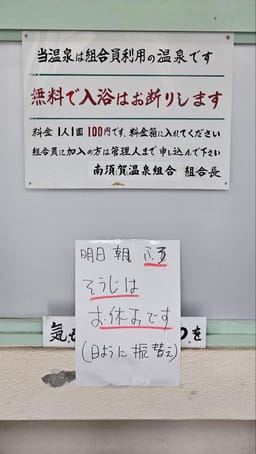 当温泉は組合員利用の温泉です
無料で入浴はお断りします
料金1人1回100円です、料金箱に入れてください
組合員に加入の方は管理人まで申し込んで下さい
南須賀温泉組合 組合長
明日 朝
そうじは
お休みです
(日ように振替え)
気
を